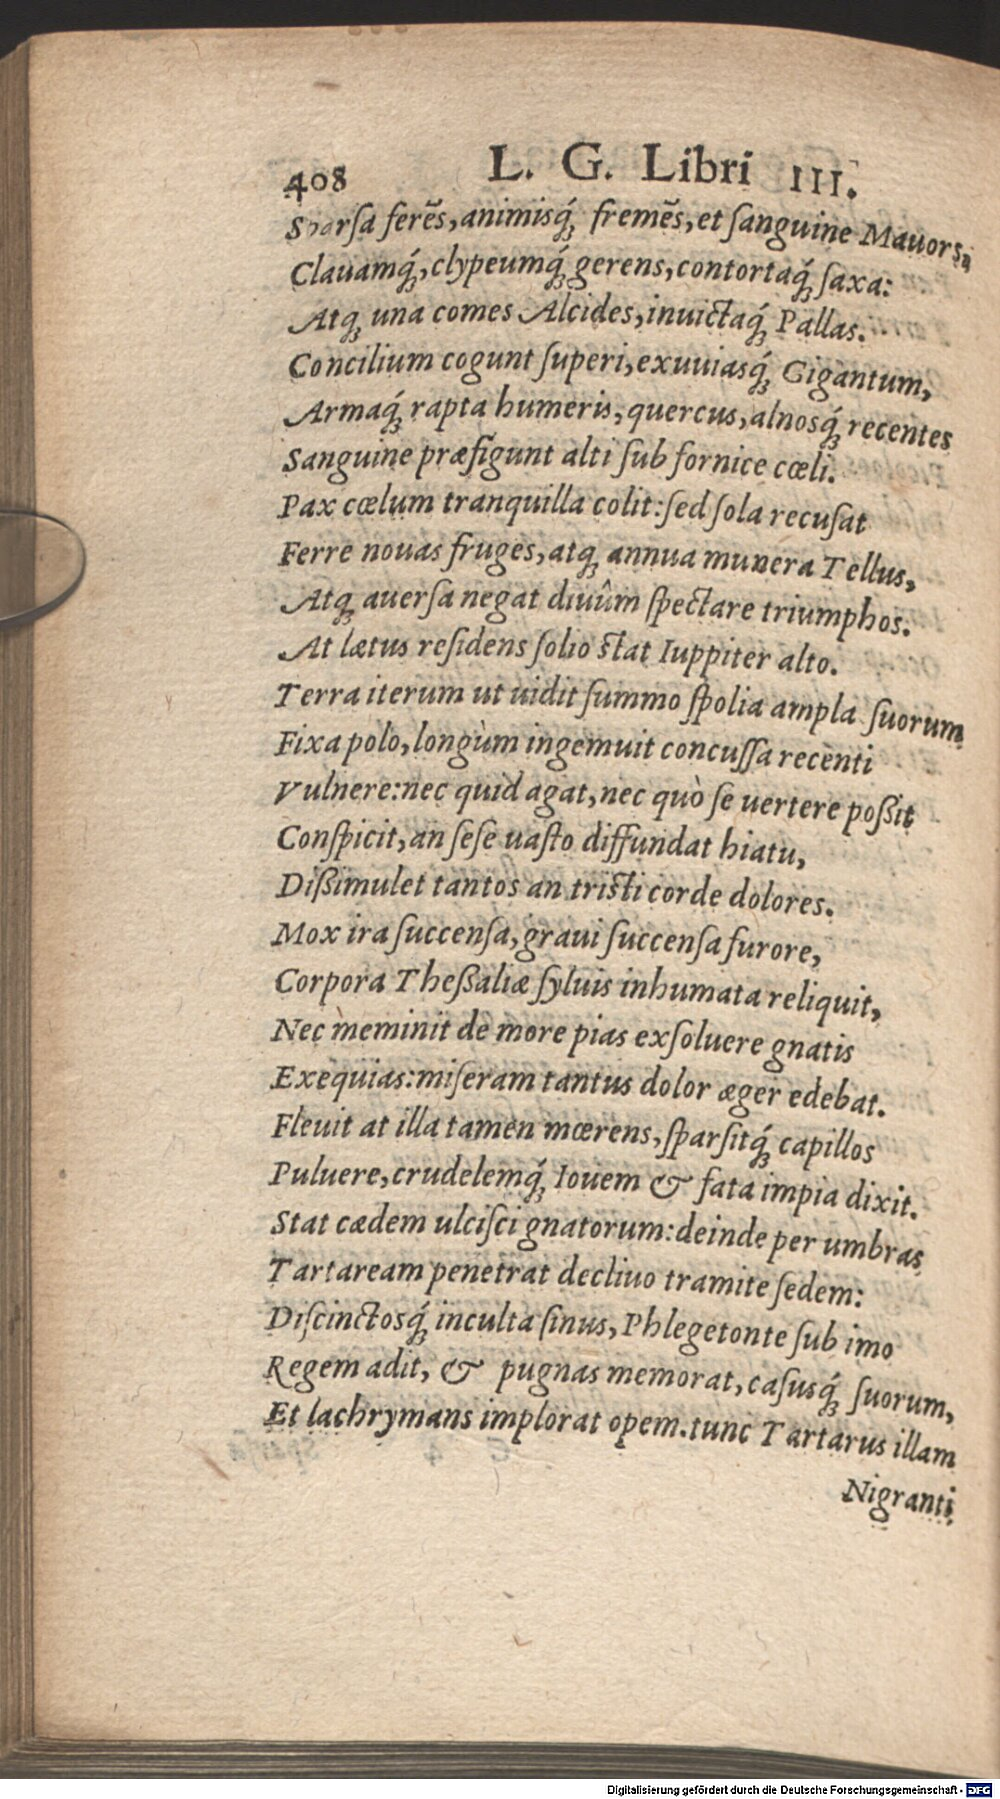 408 L. G. Libri III.
Sparsa ferēs, animisq́; fremēs, et sanguine Mauors,
Clauamq́;, clypeumq́; gerens, contortaq́; saxa:
Atq; una comes Alcides, inuictaq́; Pallas.
Concilium cogunt superi, exuuiasq́; Gigantum,
Armaq́; rapta humeris, quercus, alnosq́; recentes
Sanguine præfigunt alti sub fornice cœli.
Pax cœlum tranquilla colit: sed sola recusat
Ferre nouas fruges, atq; annua munera Tellus,
Atq; auersa negat diuûm spectare triumphos.
At lætus residens solio stat Iuppiter alto.
Terra iterum ut uidit summo spolia ampla suorum
Fixa polo, longùm ingemuit concussa recenti
Vulnere: nec quid agat, nec quò se uertere poßit
Conspicit, an sese uasto diffundat hiatu,
Dißimulet tantos an tristi corde dolores.
Mox ira succensa, graui succensa furore,
Corpora Theßaliæ syluis inhumata reliquit,
Nec meminit de more pias exsoluere gnatis
Exequias: miseram tantus dolor æger edebat.
Fleuit at illa tamen mœrens, sparsitq́; capillos
Puluere, crudelemq́; Iouem & fata impia dixit.
Stat cædem ulcisci gnatorum: deinde per umbras
Tartaream penetrat decliuo tramite sedem:
Discinctosq́; inculta sinus, Phlegetonte sub imo
Regem adit, & pugnas memorat, casusq́; suorum,
Et lachrymans implorat opem. tunc Tartarus illam
Nigranti
Digitalisierung gefördert durch die Deutsche Forschungsgemeinschaft - DFG